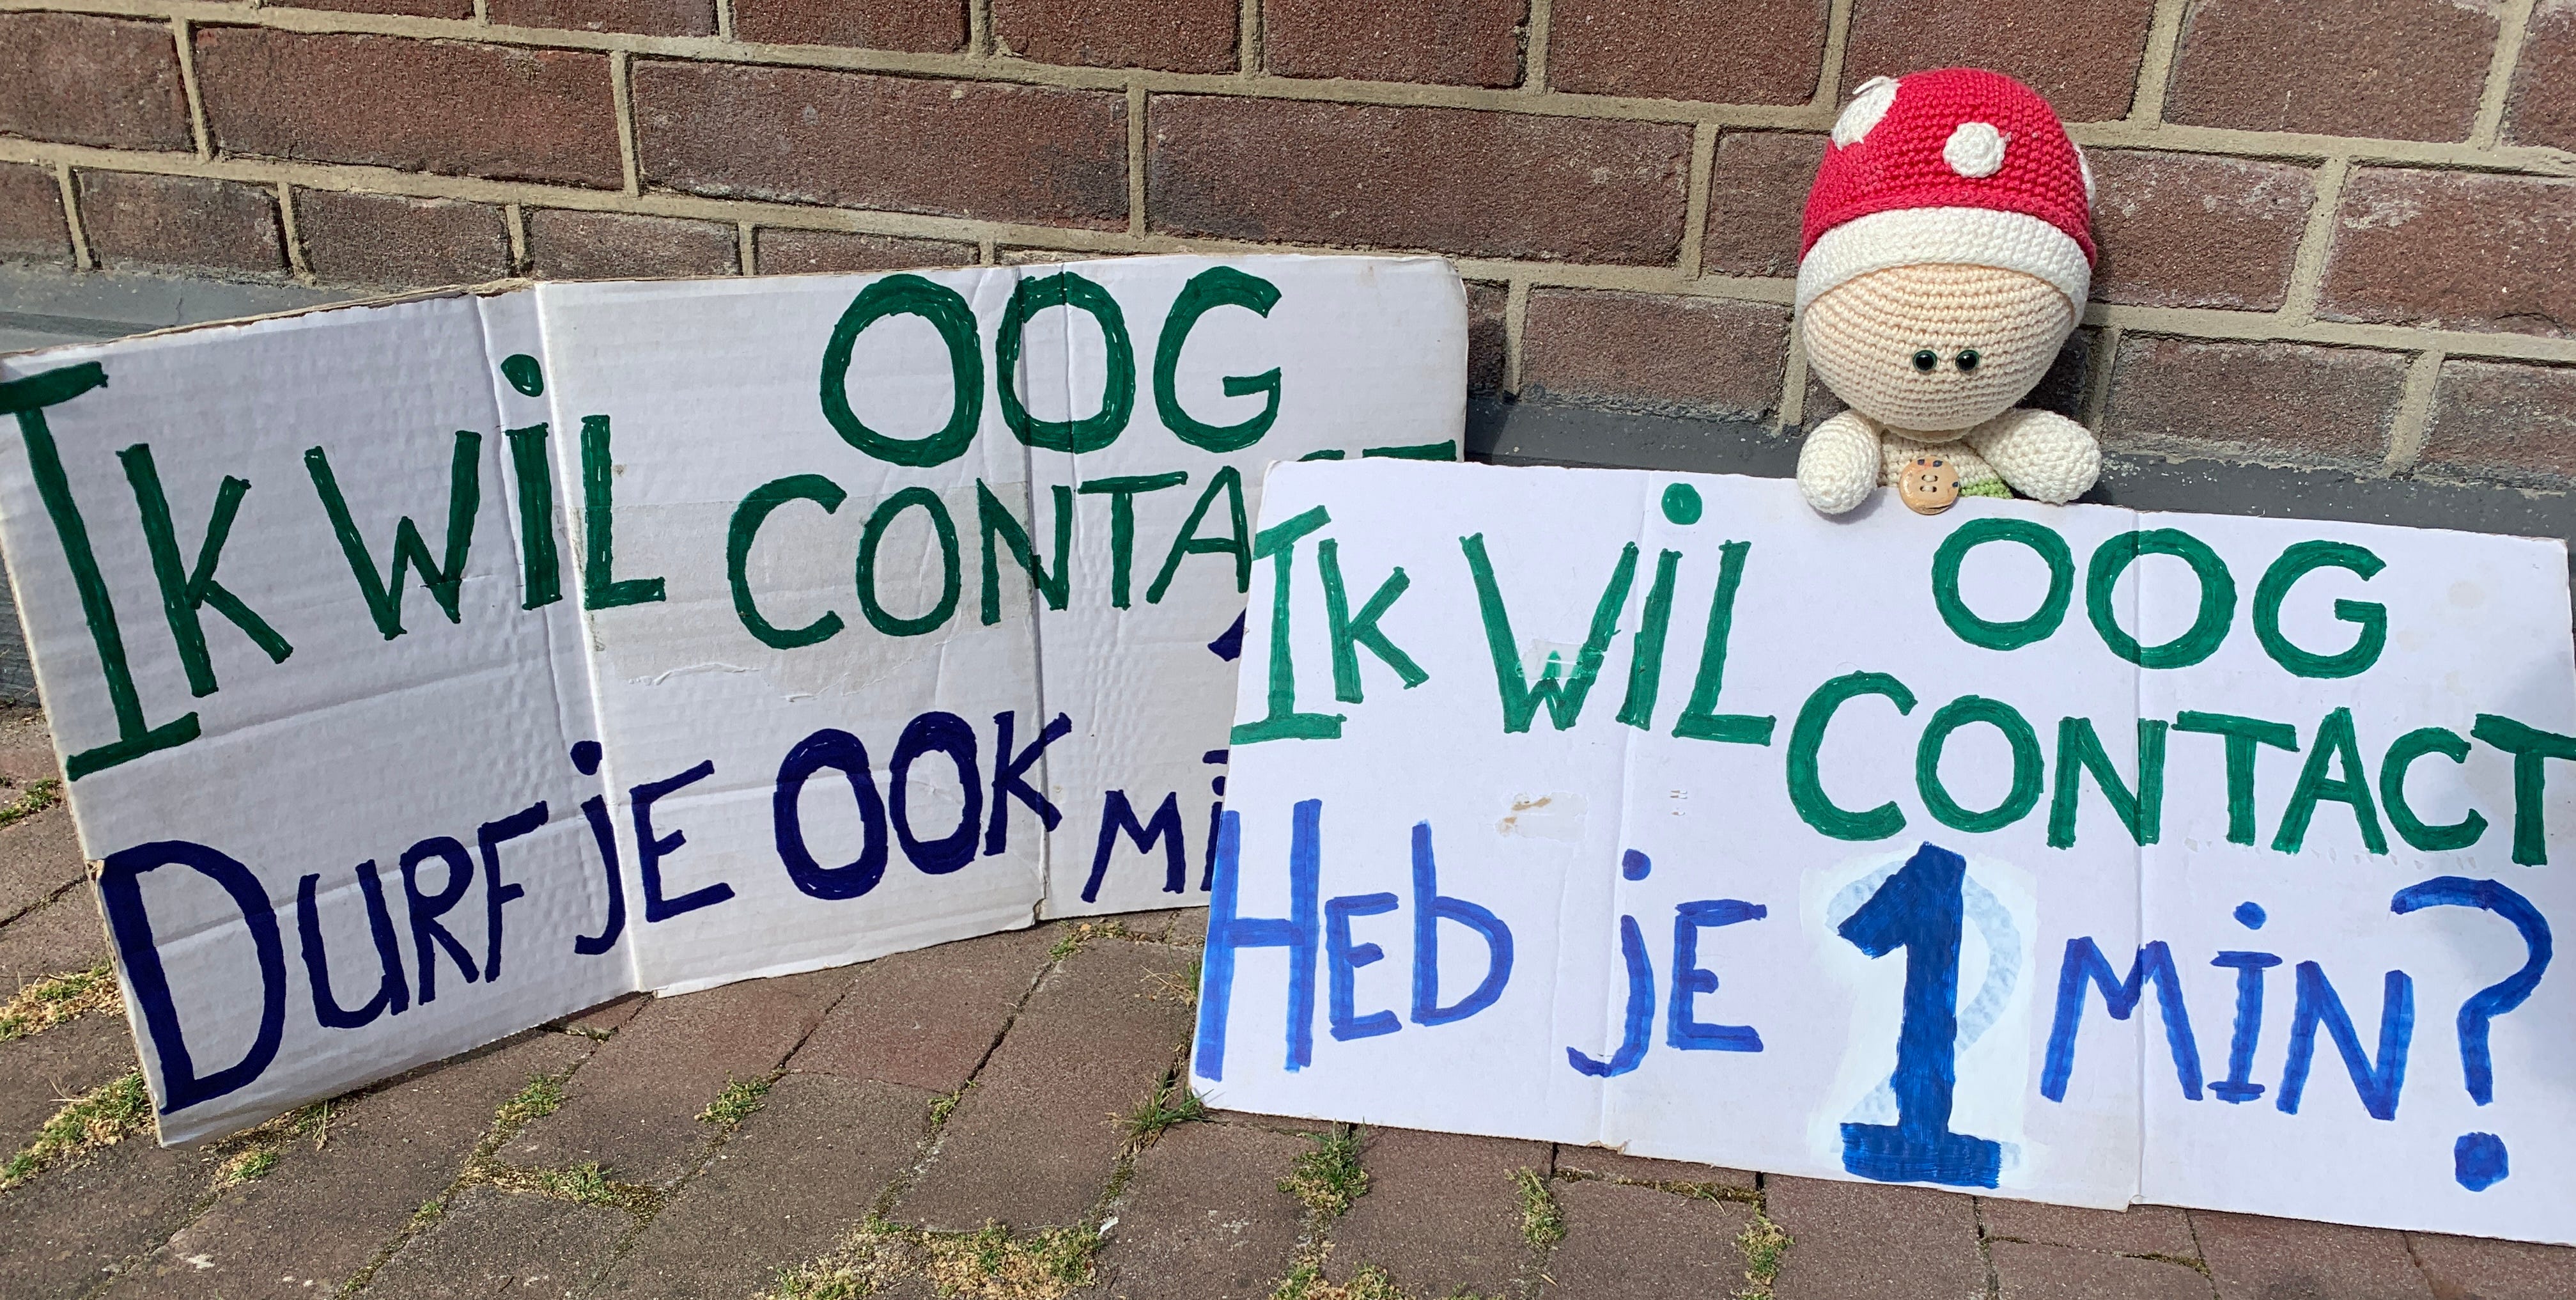 OOG
IK WiL CONTA
DURF jE OOK
OOG
IK WiL CONTACT
HEb jE 1 MIN?